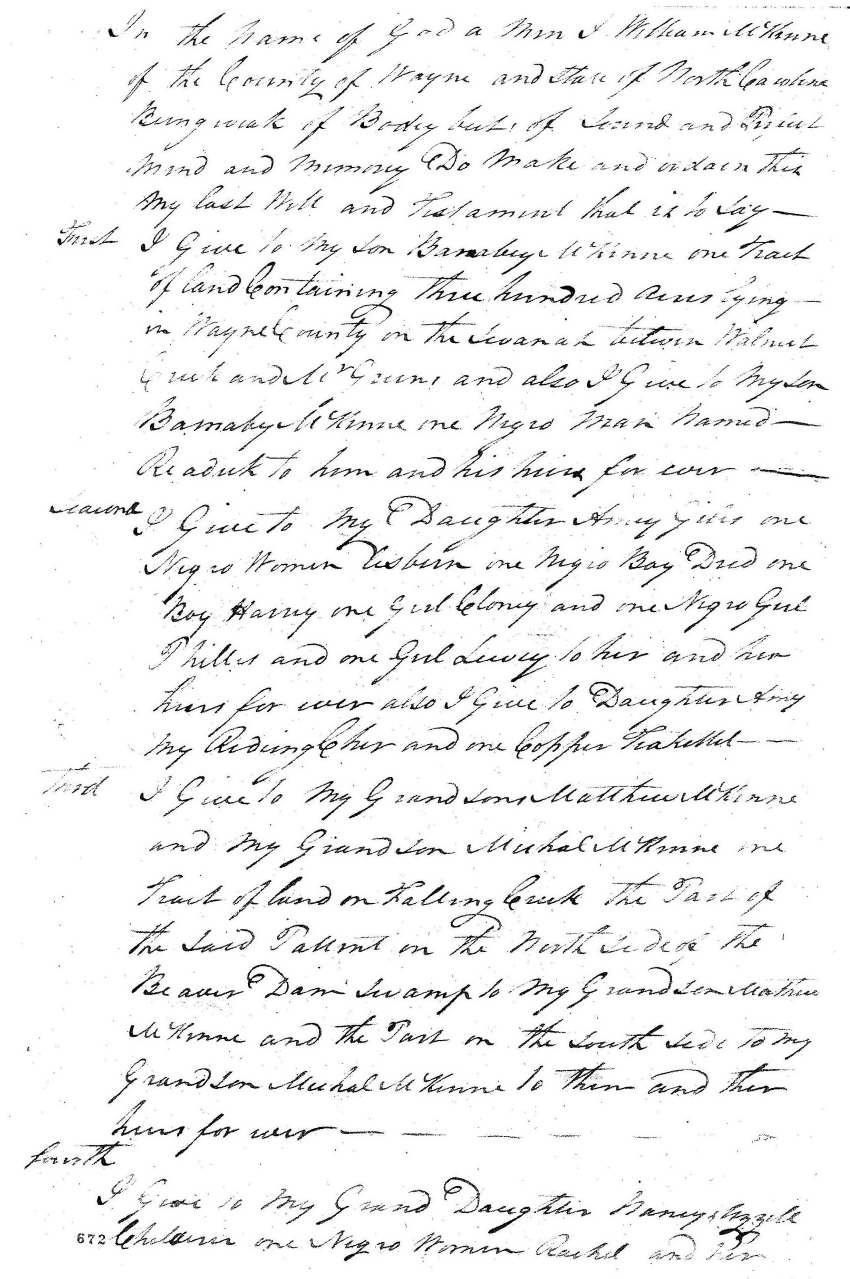 In the Name of God a Men I William McKinne
of the County of Wayne and State of North Carolina
Being weak of Bodey but of Sound and Perfect
Mind and Memory Do Make and ordain this
My last Will and Testament that is to say—
First I Give to My Son Barnabey McKinne one Tract
of land Containing three hundred acres lying—
in Wayne County on the Savanah between Walnut
Creek and Mr Greens and also I Give to My Son
Barnabey McKinne one Negro Man Named—
Readick to him and his heirs for ever —
Second I Give to My Daughter Amey one
Negro Women one Negro Boy Dred one
Boy Harvey one Girl Cloney and one Negro Girl
Phillis and one Girl to her and her
heirs for ever also I Give to Daughter Amy
My Rideing Cher and one Copper Teakettel—
Third I Give to My Grand sons Matthew McKinne
and My Grandson Michal McKinne one
Tract of land on Falling Creek the Part of
the Said Pattent on the North Side of the
Beaver Dam Swamp to My Grandson Mathew
McKinne and the Part on the South Side to My
Grandson Michal McKinne to them and ther
heirs for ever — — — — —
fourth
I Give to My Grand Daughter Nancy
672 Children one Negro Women Rachel and her